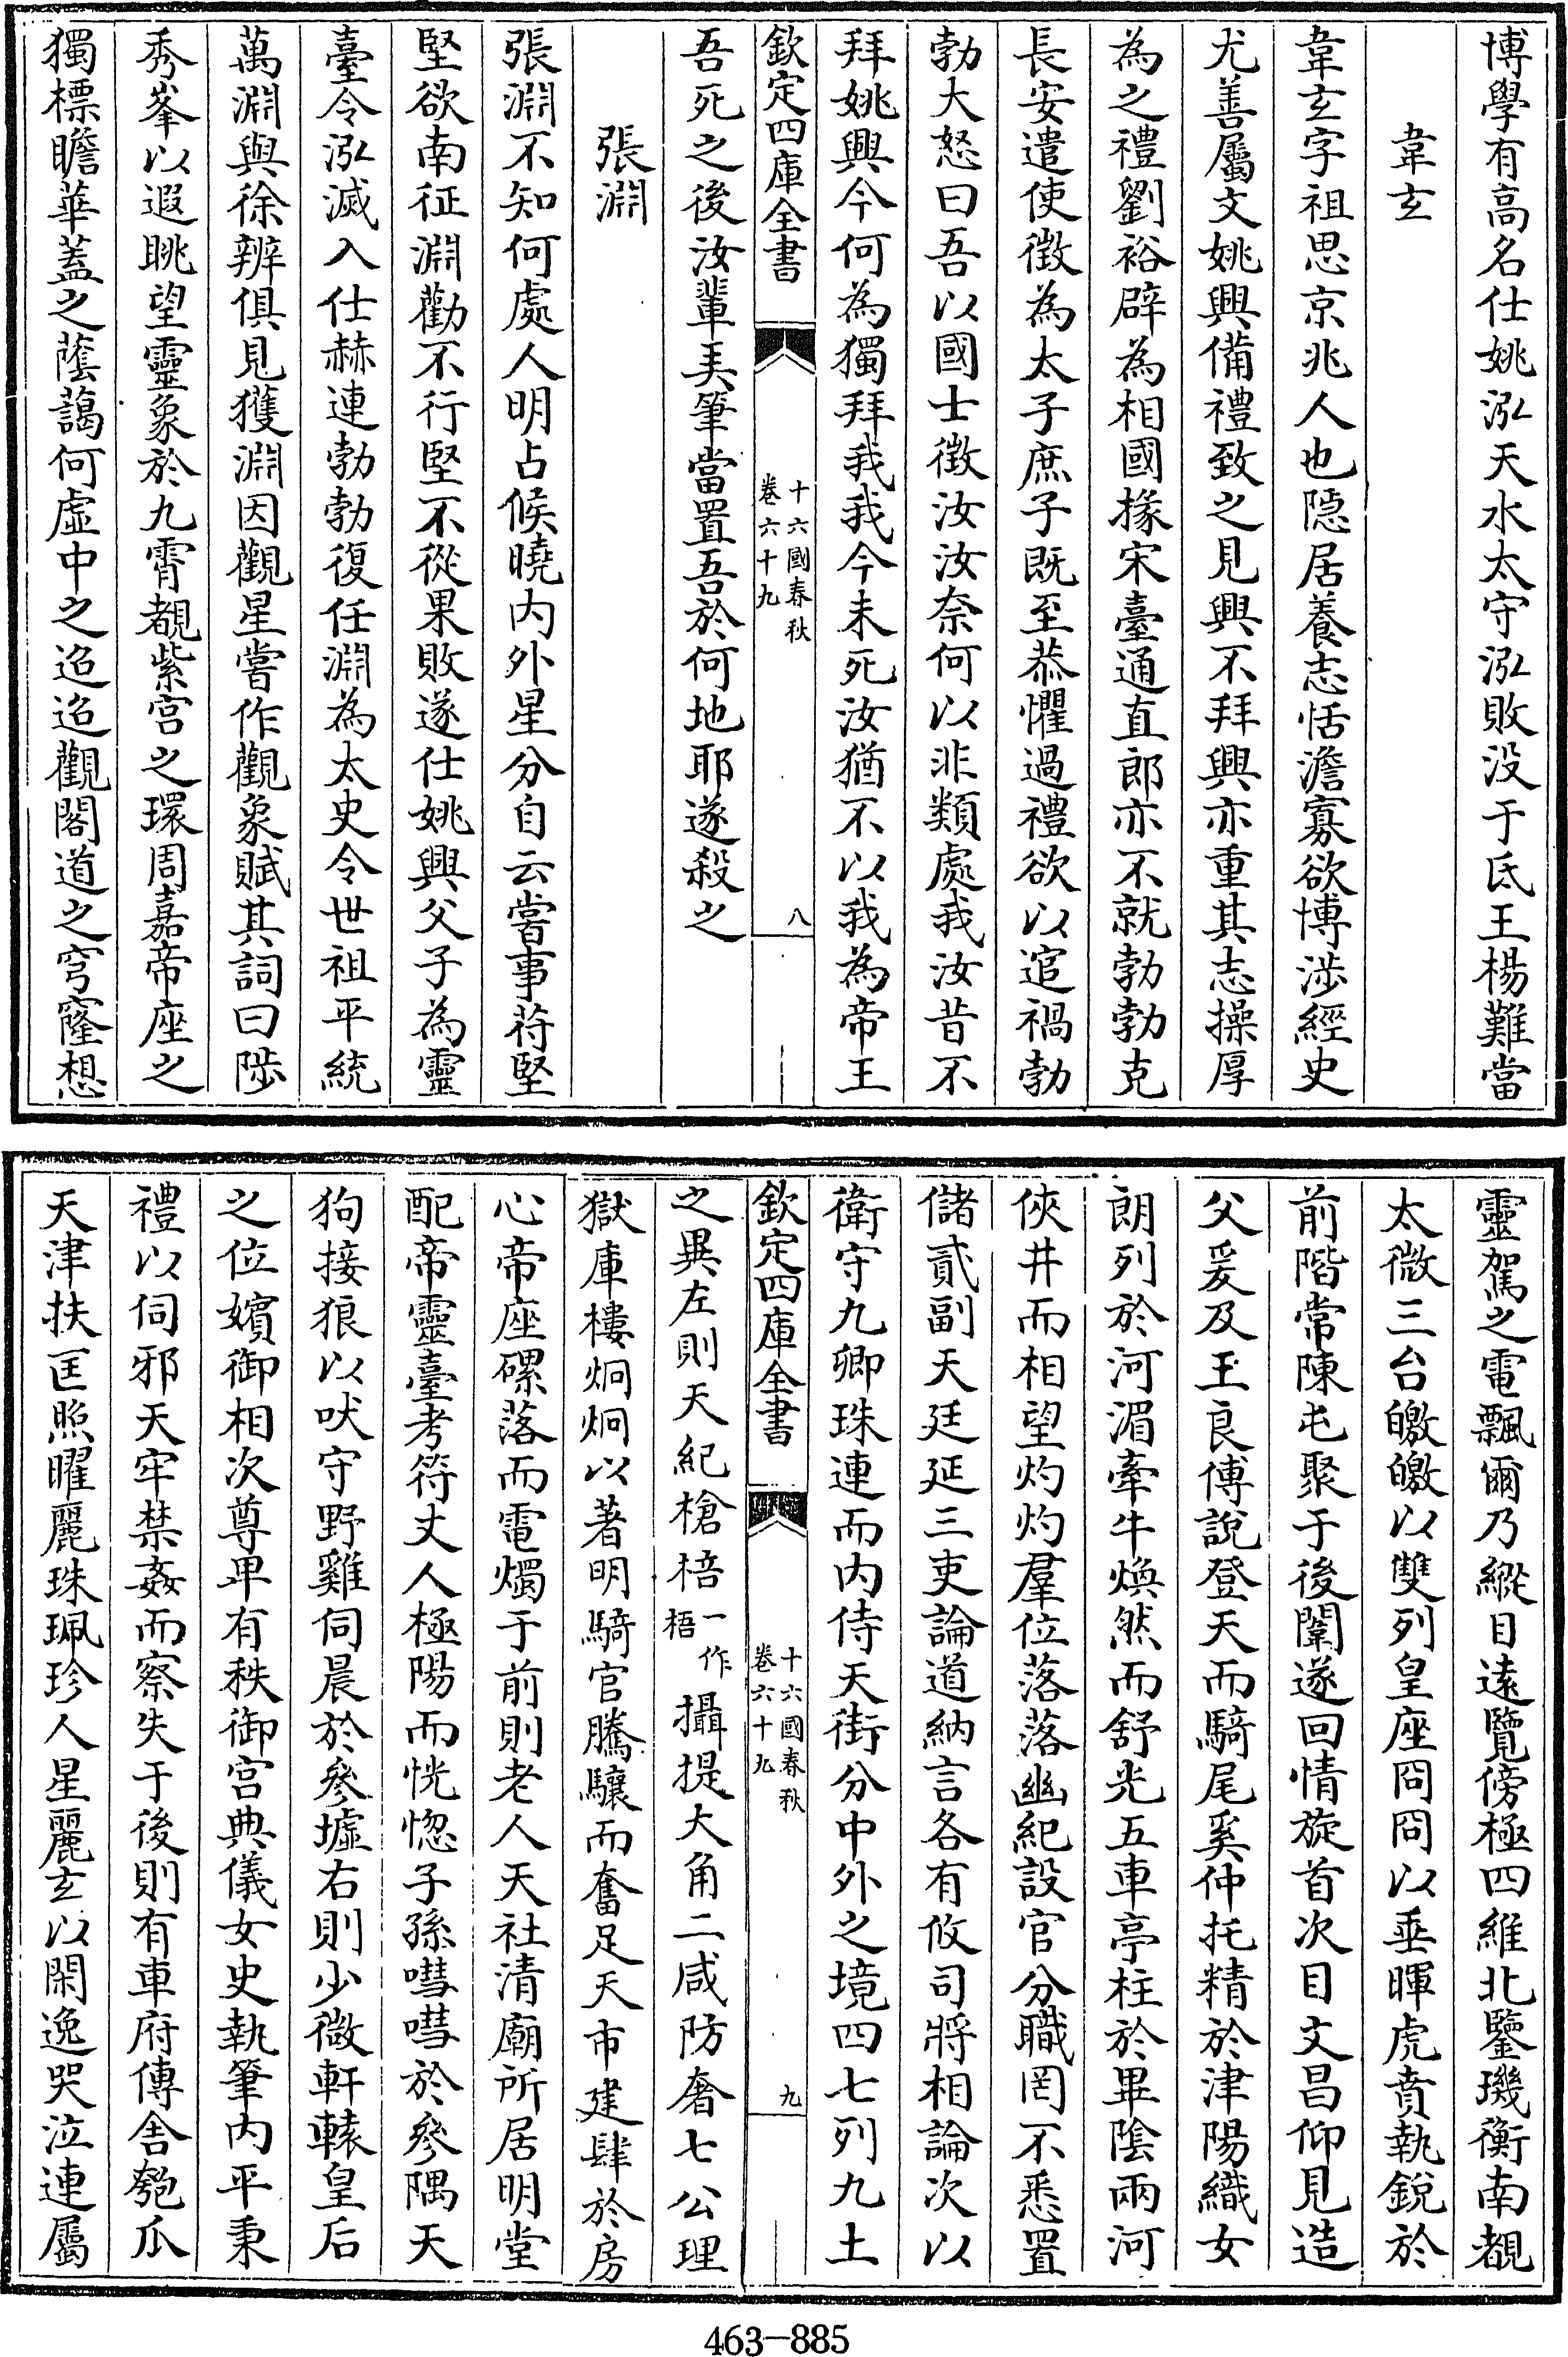 博學有高名仕姚泓天水太守泓敗没于氐王楊難當
韋玄
韋玄字祖思京兆人也隱居養志恬澹寡欲博涉經史
尤善屬文姚興備禮致之見興不拜興亦重其志操厚
為之禮劉裕辟為相國掾宋臺通直郎亦不就勃勃克
長安遣使徵為太子庶子既至恭懼過禮欲以逭禍勃
勃大怒曰吾以國士徵汝汝奈何以非類處我汝昔不
拜姚興今何為獨拜我我今未死汝猶不以我為帝王
欽定四庫全書
十六國春秋
卷六十九
八
吾死之後汝輩弄筆當置吾於何地耶遂殺之
張淵
張淵不知何處人明占候曉内外星分自云嘗事苻堅
堅欲南征淵勸不行堅不從果敗遂仕姚興父子為靈
臺令泓滅入仕赫連勃勃復任淵為太史令世祖平統
萬淵與徐辨俱見獲淵因觀星嘗作觀象賦其詞曰陟
秀峯以遐眺望靈象於九霄覩紫宫之環周嘉帝座之
獨標瞻華蓋之蔭藹何虚中之迢迢觀閣道之穹窿想
靈駕之電飄爾乃縱目遠覽傍極四維北鑒璣衡南覩
太微三台皦皦以雙列皇座冏冏以垂暉虎賁執銳於
前階常陳屯聚于後闈遂回情旋首次目文昌仰見造
父爰及王良傅說登天而騎尾奚仲托精於津陽織女
朗列於河湄牽牛煥然而舒光五車亭柱於畢陰兩河
俠井而相望灼灼羣位落落幽紀設官分職罔不悉置
儲貳副天廷延三吏論道納言各有攸司將相論次以
衛守九卿珠連而内侍天街分中外之境四七列九土
欽定四庫全書
十六國春秋
卷六十九
九
之異左則天紀槍棓一作梧攝提大角二咸防奢七公理
獄庫樓炯炯以著明騎官騰驤而奮足天市建肆於房
心帝座磥落而電燭于前則老人天社清廟所居明堂
配帝靈臺考符丈人極陽而恍惚子孫嘒嘒於參隅天
狗接狼以吠守野雞伺晨於參墟右則少微軒轅皇后
之位嬪御相次尊卑有秩御宫典儀女史執筆内平秉
禮以伺邪天牢禁姦而察失于後則有車府傳舍匏瓜
天津扶匡照曜麗珠珮珍人星麗玄以閑逸哭泣連屬
463-885